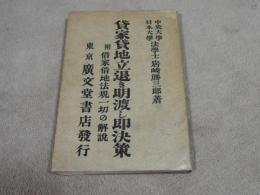 中央大學
日本大學 法學士 岩崎勝三郎著
貸家貸地立退き明渡し即決策
附 借家借地法規一切の解説
東京 廣文堂書店發行